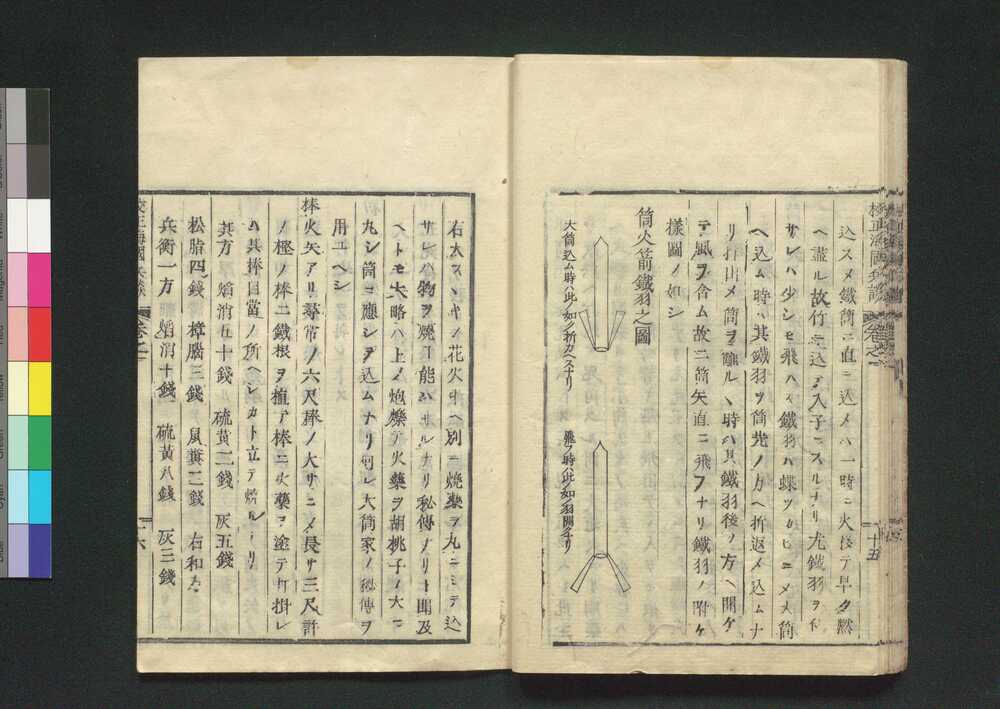 込スメ鐵筒ニ直ニ込メハ一時ニ火移テ早ク燃
ヘ盡ル故竹ニ込テ入子ニスルナリ尤鐵羽ヲ付
サレハ少シモ飛ハス鐵羽ハ蝶ツカヒニメメ筒
ヘ込ム時ハ其鐵羽ヲ筒先ノ方ヘ折返メ込ムナ
リ打出メ筒ヲ離ルヽ時ハ其鐵羽後ノ方ヘ開ケ
テ風ヲ含ム故ニ筒矢直ニ飛フナリ鐵羽ノ附ケ
樣圖ノ如シ
筒火箭鐵羽之圖
大筒ヘ込ム時ハ此ノ如ク折カヘスナリ
飛フ時ハ此如ク羽開クナリ
十五
右大スヽキノ花火中ヘ別ニ燒藥ヲ丸ニシテ込
サレハ物ヲ燒ヿ能ハサルナリ秘傳ナリト聞及
ヘトモ大略ハ上ノ炮爍ノ火藥ヲ胡桃子ノ大ニ
丸シ筒ニ應シテ込ムナリ何レ大筒家ノ秘傳ヲ
用ユヘシ
棒火矢アリ尋常ノ六尺棒ノ大サニメ長サ三尺許
ノ樫ノ棒ニ鐵根ヲ植テ棒ニ火藥ヲ塗テ打掛レ
ハ其棒目當ノ所ヘシカト立テ燒ルナリ
其方 焔消五十錢 硫黄二錢 灰五錢
松脂四錢 樟腦三錢 鼠糞二錢 右和ス
兵衡一方 焔消十錢 硫黄八錢 灰三錢
十六